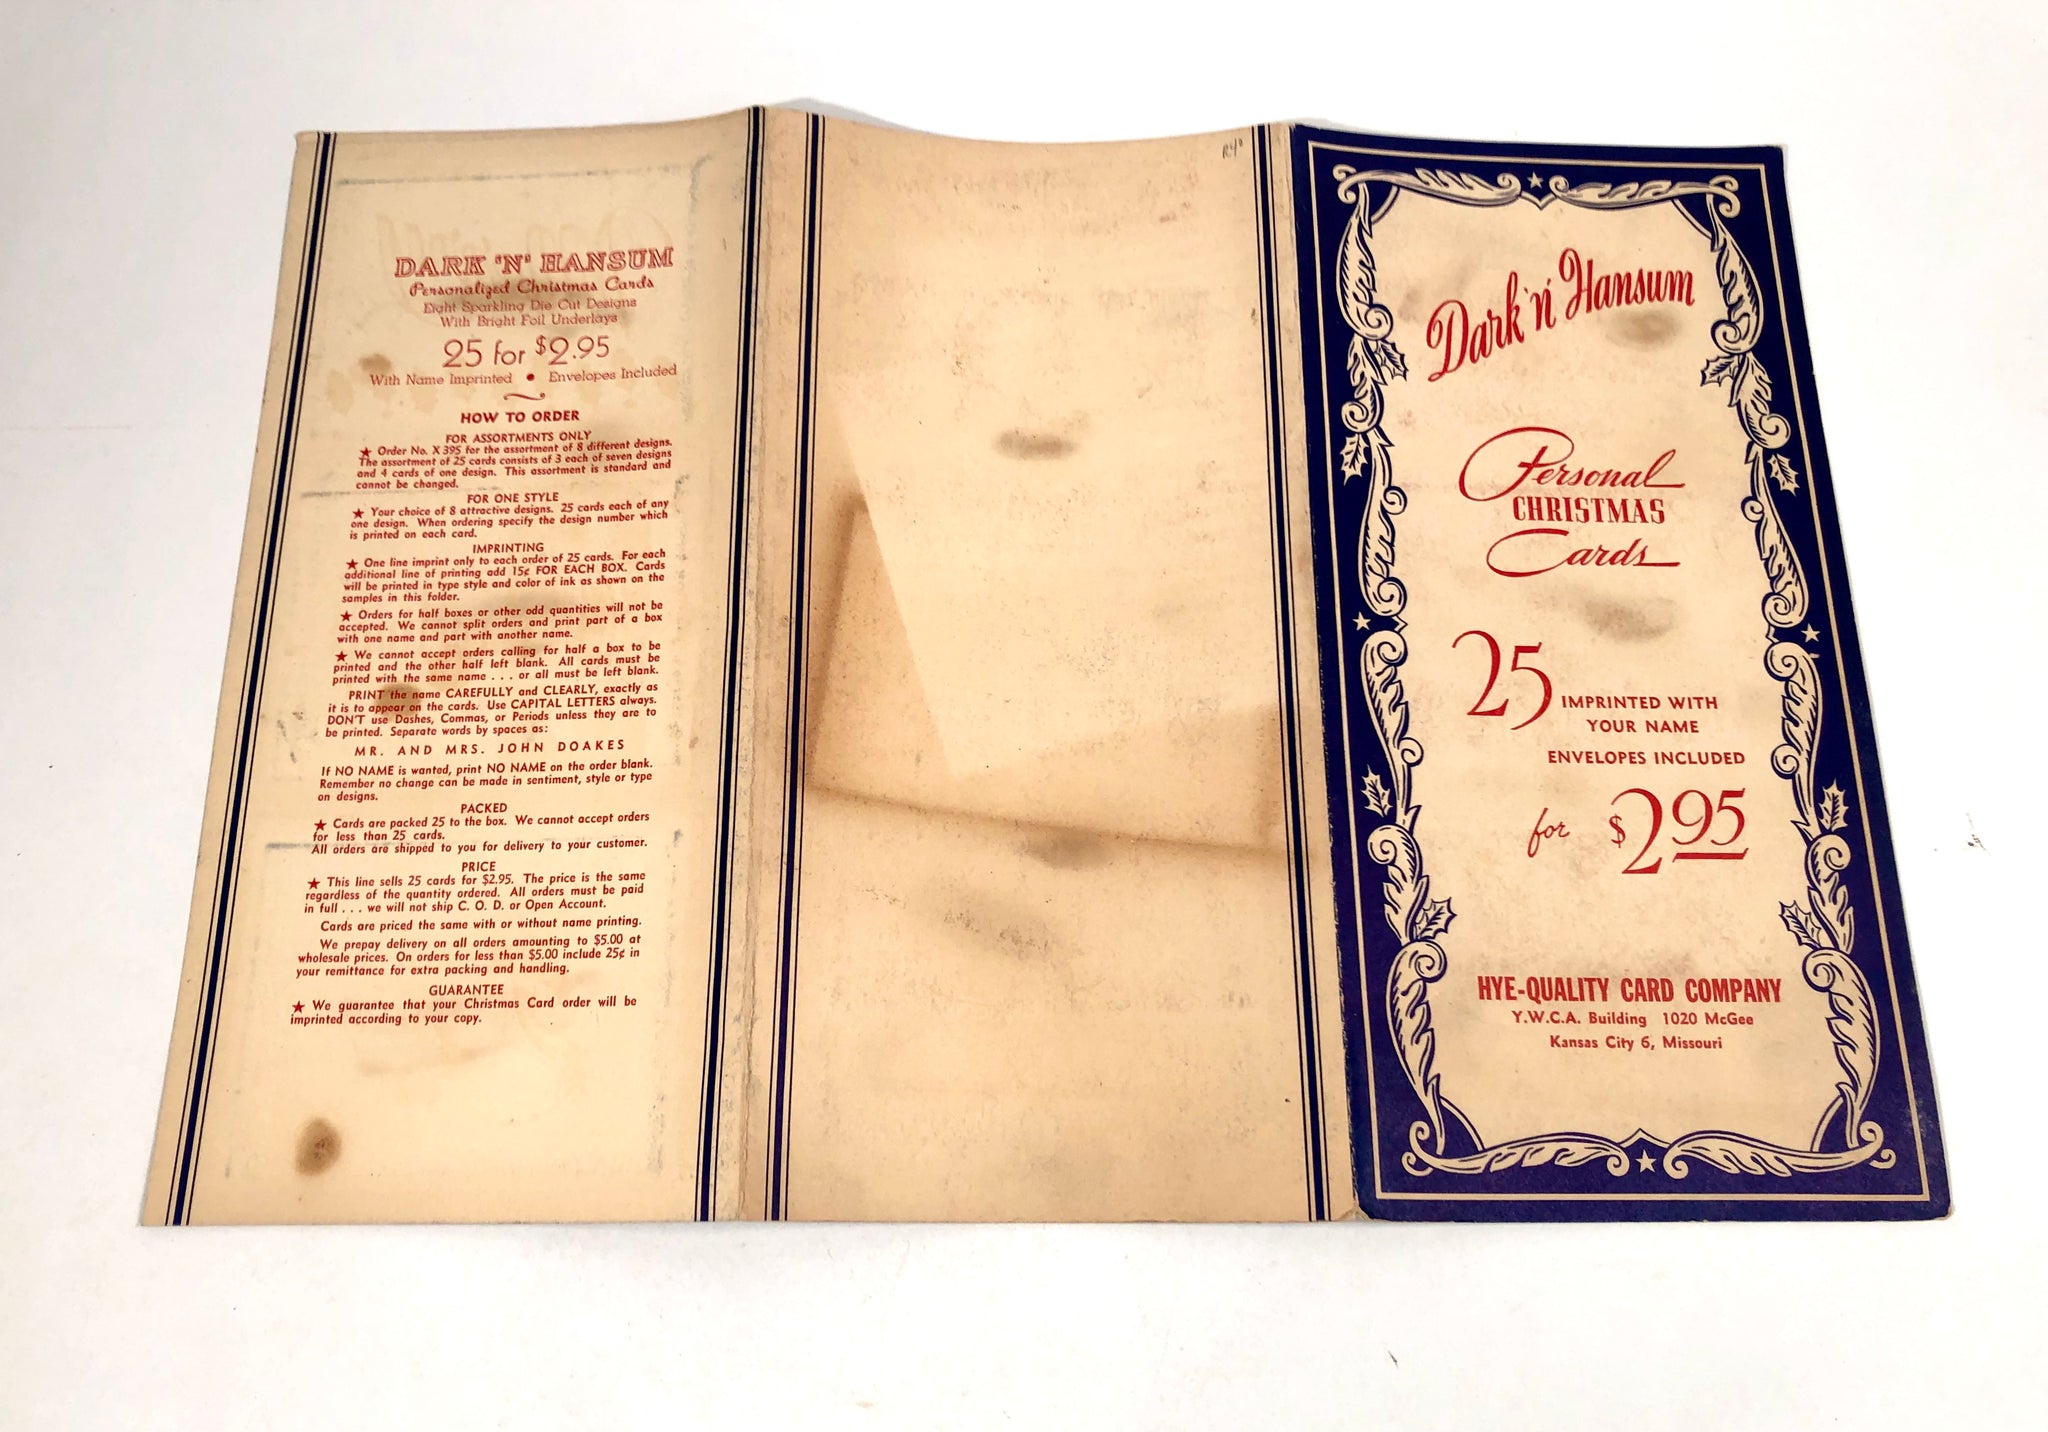 DARK 'N' HANSUM
Personalized Christmas Cards
Eight Sparkling Die Cut Designs
With Bright Foil Underlays
25 for $2.95
With Name Imprinted • Envelopes Included
HOW TO ORDER
FOR ASSORTMENTS ONLY
★ Order No. X 395 for the assortment of 8 different designs.
The assortment of 25 cards consists of 3 each of seven designs
and 4 cards of one design. This assortment is standard and
cannot be changed.
FOR ONE STYLE
★ Your choice of 8 attractive designs. 25 cards each of any
one design. When ordering specify the design number which
is printed on each card.
IMPRINTING
★ One line imprint only to each order of 25 cards. For each
additional line of printing add 15¢ FOR EACH BOX. Cards
will be printed in type style and color of ink as shown on the
samples in this folder.
★ Orders for half boxes or other odd quantities will not be
accepted. We cannot split orders and print part of a box
with one name and part with another name.
★ We cannot accept orders calling for half a box to be
printed and the other half left blank. All cards must be
printed with the same name . . . or all must be left blank.
PRINT the name CAREFULLY and CLEARLY, exactly as
it is to appear on the cards. Use CAPITAL LETTERS always.
DON'T use Dashes, Commas, or Periods unless they are to
be printed. Separate words by spaces as:
MR. AND MRS. JOHN DOAKES
If NO NAME is wanted, print NO NAME on the order blank.
Remember no change can be made in sentiment, style or type
on designs.
PACKED
★ Cards are packed 25 to the box. We cannot accept orders
for less than 25 cards.
All orders are shipped to you for delivery to your customer.
PRICE
★ This line sells 25 cards for $2.95. The price is the same
regardless of the quantity ordered. All orders must be paid
in full . . . we will not ship C. O. D. or Open Account.
Cards are priced the same with or without name printing.
We prepay delivery on all orders amounting to $5.00 at
wholesale prices. On orders for less than $5.00 include 25¢ in
your remittance for extra packing and handling.
GUARANTEE
★ We guarantee that your Christmas Card order will be
imprinted according to your copy.
Dark 'n' Hansum
Personal
CHRISTMAS
Cards
25 IMPRINTED WITH
YOUR NAME
ENVELOPES INCLUDED
for $2.95
HYE-QUALITY CARD COMPANY
Y.W.C.A. Building 1020 McGee
Kansas City 6, Missouri